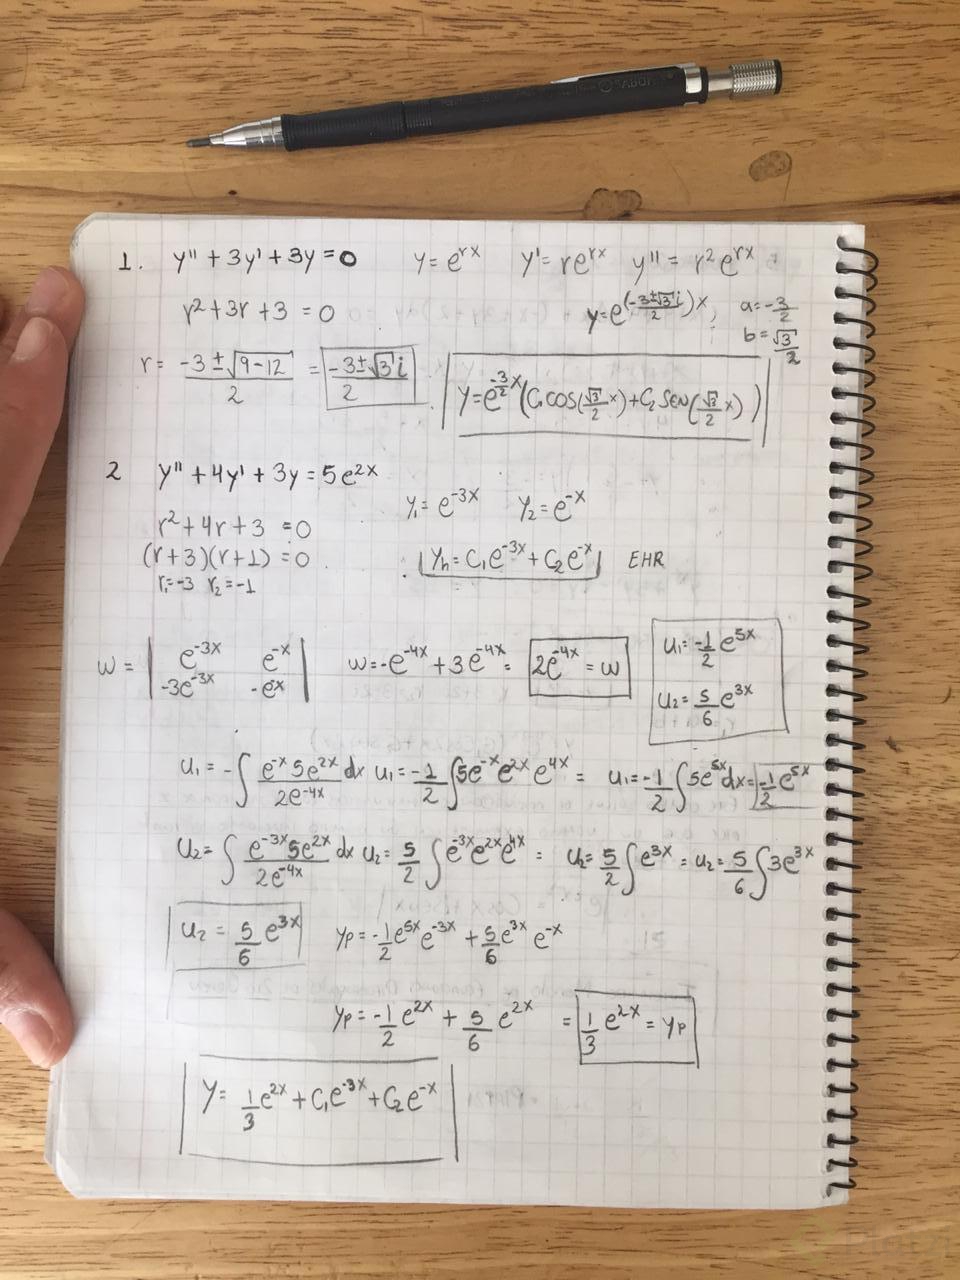 1. y'' + 3y' + 3y = 0 y = e^{rx} y' = re^{rx} y'' = r^2 e^{rx}
r^2 + 3r + 3 = 0 y = e^{(\frac{-3±√3 i}{2})x}; a = -\frac{3}{2}
b = \frac{√3}{2}
r = \frac{-3 ± √(9-12)}{2} = \frac{-3±√3 i}{2} y = e^{-\frac{3}{2}x}(C_1 cos(\frac{√3}{2}x) + C_2 sen(\frac{√3}{2}x))
2 y'' + 4y' + 3y = 5e^{2x}
r^2 + 4r + 3 = 0 y_1 = e^{-3x} y_2 = e^{-x}
(r+3)(r+1) = 0 y_h = C_1 e^{-3x} + C_2 e^{-x} EHR
r_1 = -3 r_2 = -1
w = | e^{-3x} e^{-x} | w = -e^{-4x} + 3e^{-4x} = 2e^{-4x} = w u_1 = -\frac{1}{2} e^{5x}
| -3e^{-3x} -e^{-x} | u_2 = \frac{5}{6} e^{3x}
u_1 = -∫ \frac{e^{-x} 5e^{2x}}{2e^{-4x}} dx u_1 = -\frac{1}{2} ∫ 5e^{-x} e^{2x} e^{4x} = u_1 = -\frac{1}{2} ∫ 5e^{5x} dx = -\frac{1}{2} e^{5x}
u_2 = ∫ \frac{e^{-3x} 5e^{2x}}{2e^{-4x}} dx u_2 = \frac{5}{2} ∫ e^{-3x} e^{2x} e^{4x} = u_2 = \frac{5}{2} ∫ e^{3x} = u_2 = \frac{5}{6} ∫ 3e^{3x}
u_2 = \frac{5}{6} e^{3x} y_p = -\frac{1}{2} e^{5x} e^{-3x} + \frac{5}{6} e^{3x} e^{-x}
y_p = -\frac{1}{2} e^{2x} + \frac{5}{6} e^{2x} = \frac{1}{3} e^{2x} = y_p
y = \frac{1}{3} e^{2x} + C_1 e^{-3x} + C_2 e^{-x}